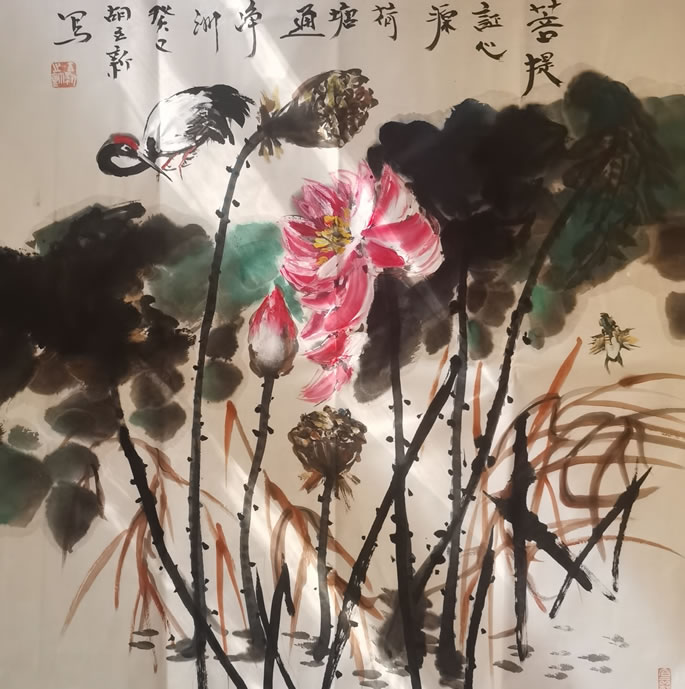 菩提
証心
源
荷
塘
通
净
洲
癸巳
胡新
写